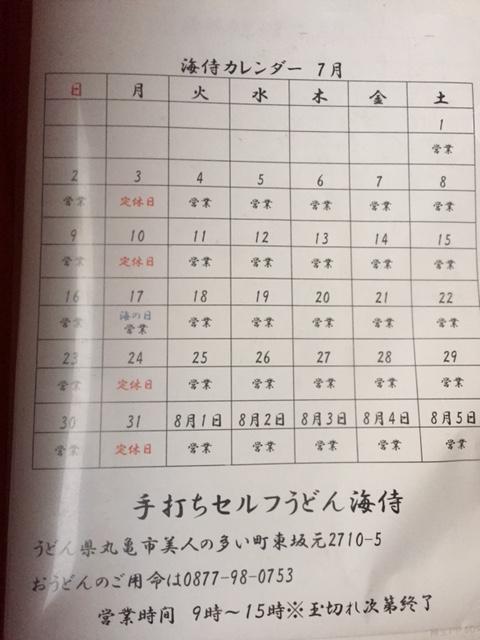 海侍カレンダー 7月
日 月 火 水 木 金 土
1
営業
2 3 4 5 6 7 8
営業 定休日 営業 営業 営業 営業 営業
9 10 11 12 13 14 15
営業 定休日 営業 営業 営業 営業 営業
16 17 18 19 20 21 22
営業 海の日 営業 営業 営業 営業 営業 営業
23 24 25 26 27 28 29
営業 定休日 営業 営業 営業 営業 営業
30 31 8月1日 8月2日 8月3日 8月4日 8月5日
営業 定休日 営業 営業 営業 営業 営業
手打ちセルフうどん海侍
うどん県丸亀市美人の多い町東坂元2710-5
おうどんのご用命は0877-98-0753
営業時間 9時～15時※玉切れ次第終了